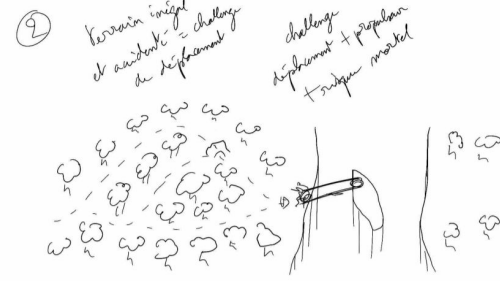 2
terrain inégal
et accidenté = challenge
du déplacement
challenge
déplacement + propulsion
+ risque mortel